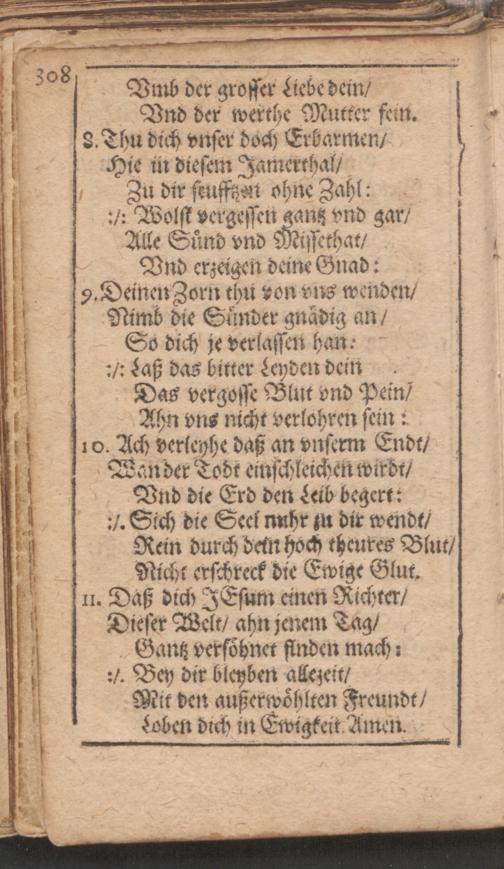 308
Vmb der grosser Liebe dein/
Vnd der werthe Mutter sein.
8. Thu dich vnser doch Erbarmen/
Hie in diesem Jamerthal/
Zu dir seufftzen ohne Zahl:
:/: Wolst vergessen gantz vnd gar/
Alle Sünd vnd Missethat/
Vnd erzeigen deine Gnad:
9. Deinen Zorn thu von vns wenden/
Nimb die Sünder gnädig an/
So dich je verlassen han:
:/: Laß das bitter Leyden dein
Das vergosse Blut vnd Pein/
Ahn vns nicht verlohren sein:
10. Ach verleyhe daß an vnserm Endt/
Wan der Todt einschleichen wirdt/
Vnd die Erd den Leib begert:
:/. Sich die Seel nuhr zu dir wendt/
Rein durch dein hoch theures Blut/
Nicht erschreck die Ewige Glut.
11. Daß dich JEsum einen Richter/
Dieser Welt/ ahn jenem Tag/
Gantz versöhnet finden mach:
:/. Bey dir bleyben allezeit/
Mit den außerwöhlten Freundt/
Loben dich in Ewigkeit Amen.